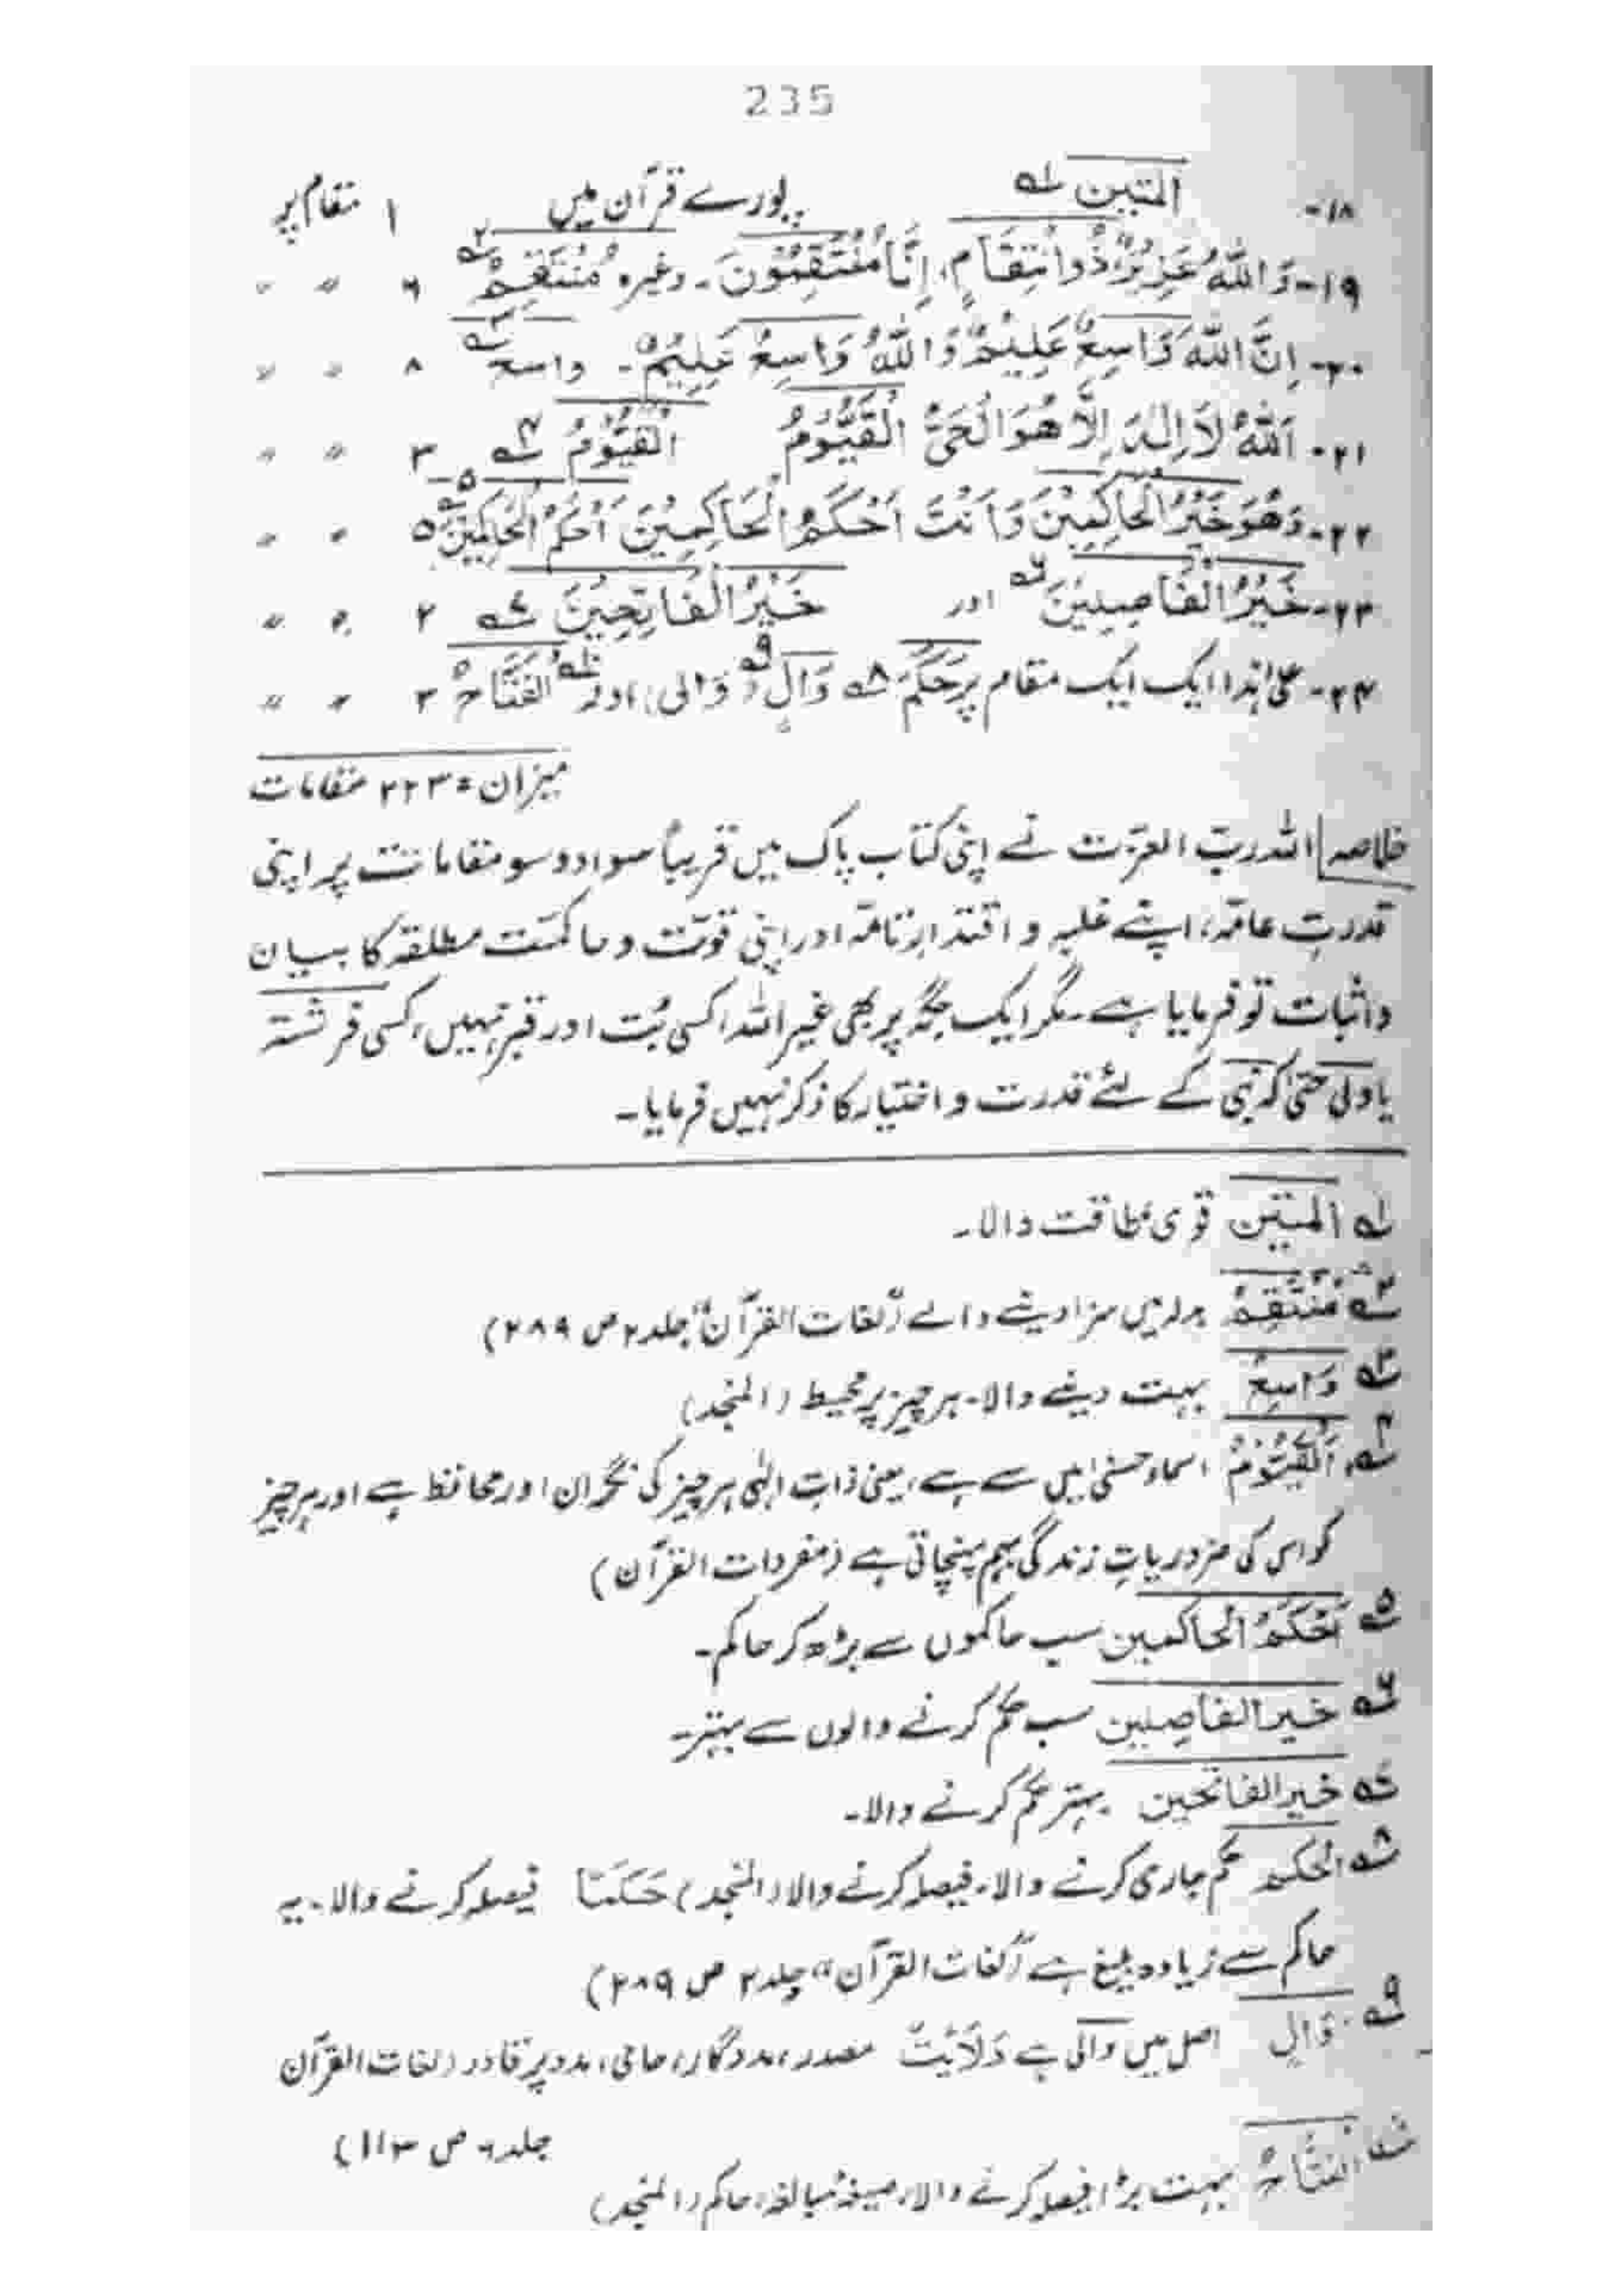 235
۱۸- المتین ۱؎ پورے قرآن میں ۱ مقام پر
۱۹- وَاللّٰهُ عَزِیْزٌ ذُوانْتِقَامٍ، اِنَّا مُنْتَقِمُوْنَ۔ وغیرہ مُنْتَقِمٌ ۲؎ ۶ " "
۲۰- اِنَّ اللّٰهَ وَاسِعٌ عَلِیْمٌ وَاللّٰهُ وَاسِعٌ عَلِیْمٌ۔ واسع ۳؎ ۸ " "
۲۱- اَللّٰهُ لَا اِلٰهَ اِلَّا هُوَ الْحَیُّ الْقَیُّوْمُ الْقَیُّوْمُ ۴؎ ۳ " "
۲۲- وَهُوَ خَیْرُ الْحَاکِمِیْنَ وَاَنْتَ اَحْکَمُ الْحَاکِمِیْنَ اَحْکَمُ الْحَاکِمِیْنَ ۵؎ ۵ " "
۲۳- خَیْرُ الْفَاصِلِیْنَ ۶؎ اور خَیْرُ الْفَاتِحِیْنَ ۷؎ ۲ " "
۲۴- علیٰ ہٰذا ایک ایک مقام پر حَکَمَ ۸؎ وَالٍ ۹؎ (وَالی) اور الفَتَّاحُ ۱۰؎ ۳ " "
میزان = ۲۲۳ مقامات
خلاصہ اللہ ربّ العزّت نے اپنی کتاب پاک میں قریباً سوا دو سو مقامات پر اپنی
قدرتِ عامّہ، اپنے غلبہ و اقتدارِ تامّہ اور اپنی قوّت و حاکمیّت مطلقہ کا بیان
و اثبات تو فرمایا ہے۔ مگر ایک جگہ پر بھی غیر اللہ، کسی بُت اور قبر نہیں، کسی فرشتہ
یا ولی حتیٰ کہ نبی کے لئے قدرت و اختیار کا ذکر نہیں فرمایا۔
۱؎ المتین قوی طاقت والا۔
۲؎ مُنْتَقِمٌ بدلہ میں سزا دینے والے "لغات القرآن" جلد ۲ ص ۲۸۹)
۳؎ وَاسِعٌ بہت دینے والا۔ ہر چیز پر محیط (المنجد)
۴؎ اَلْقَیُّوْمُ اسماء حسنیٰ میں سے ہے، یعنی ذاتِ الٰہی ہر چیز کی نگران اور محافظ ہے اور ہر چیز
کو اس کی ضروریاتِ زندگی بہم پہنچاتی ہے (مفردات القرآن)
۵؎ اَحْکَمُ الْحاکمین سب حاکموں سے بڑھ کر حاکم۔
۶؎ خیر الفاصِلین سب حکم کرنے والوں سے بہتر۔
۷؎ خیر الفاتحین بہتر حکم کرنے والا۔
۸؎ الحکم حکم جاری کرنے والا، فیصلہ کرنے والا (المنجد) حَکَمًا فیصلہ کرنے والا۔ یہ
حاکم سے زیادہ بلیغ ہے "لغات القرآن" جلد ۲ ص ۲۸۹)
۹؎ وَالٍ اصل میں والی ہے وَلَایَتٌ مصدر، مددگار، حامی، مدد پر قادر (لغات القرآن
جلد ۶ ص ۱۱۳)
۱۰؎ الفَتَّاحُ بہت بڑا فیصلہ کرنے والا، صیغۂ مبالغہ، حاکم (المنجد)